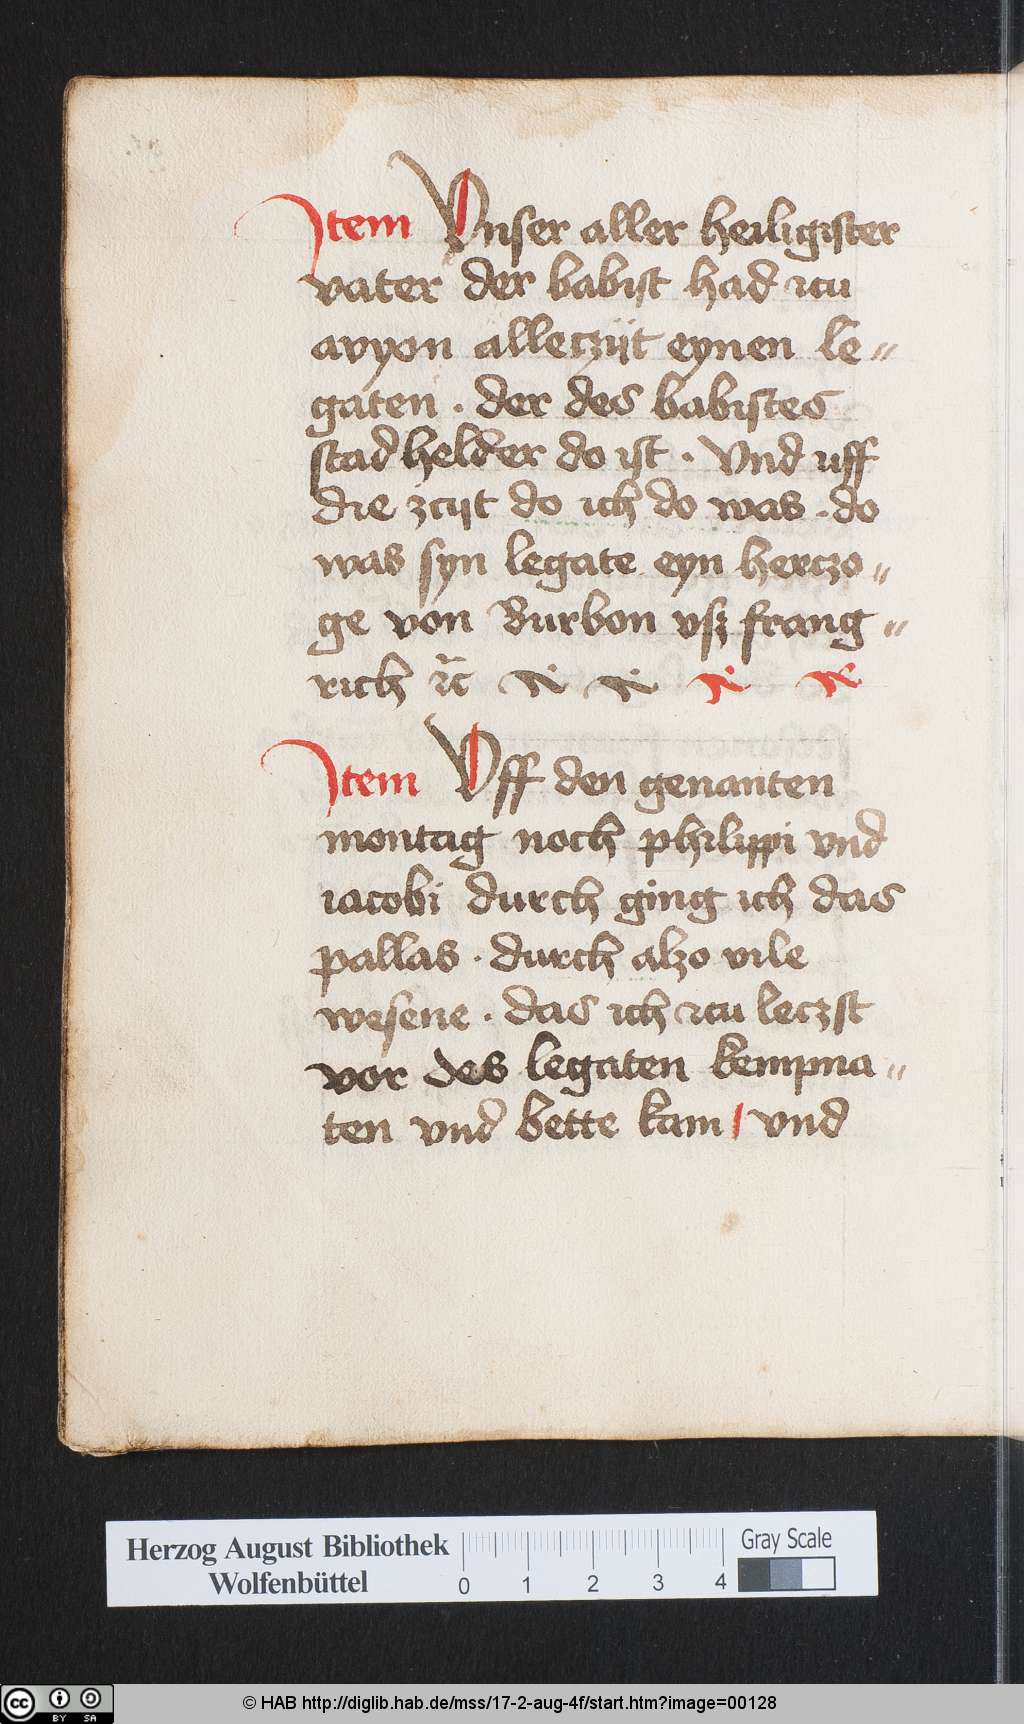 Item Vnser aller heiligister
vater der babist had zcu
avyon alleczijt eynen le〟
gaten . der des babistes
stadhelder do ist . Vnd uff
die zcijt do ich do was . do
was syn legate eyn herczo〟
ge von Burbon vsz frang〟
rich ꝛc̃
Item Vff den genanten
montag noch philippi vnd
iacobi durch ging ich das
pallas . durch alzo vile
wesene . das ich zcu leczst
vor des legaten kempna〟
ten vnd bette kam / vnd
Herzog August Bibliothek
Wolfenbüttel
0 1 2 3 4
Gray Scale
cc BY SA
© HAB http://diglib.hab.de/mss/17-2-aug-4f/start.htm?image=00128